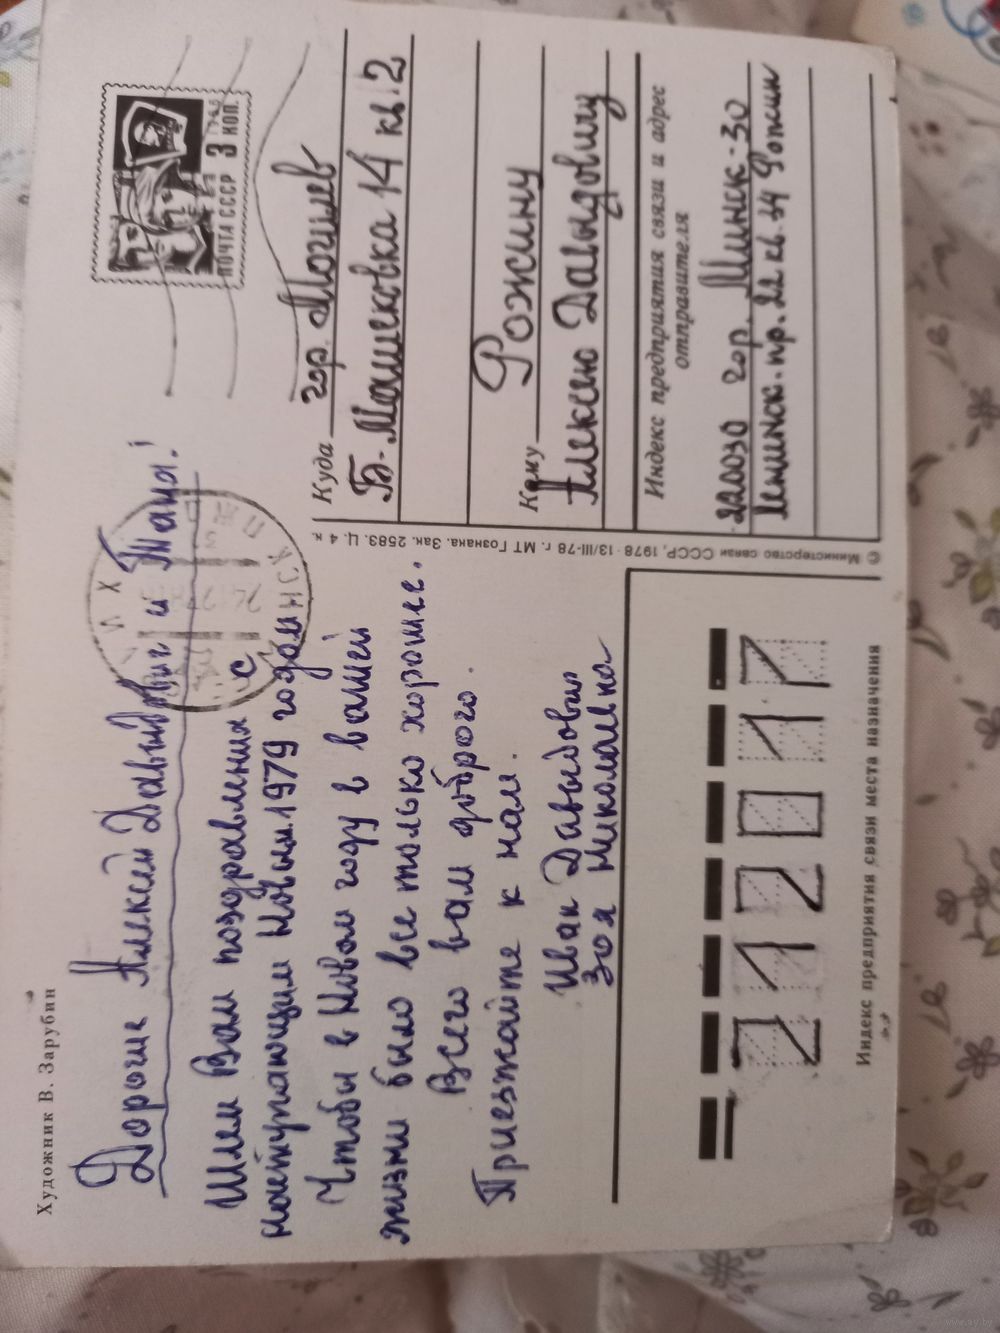 Художник В. Зарубин
Дорогие Алексей Давыдович и Таня!
Шлем Вам поздравления с
наступающим Новым 1979 годом
Чтобы в Новом году в вашей
жизни было все только хорошее.
Всего вам доброго.
Приезжайте к нам.
Иван Давыдович
Зоя Николаевна
ПОЧТА СССР 3 КОП.
Куда гор. Могилев
Б-Машековка 14 кв 2
Кому Рожину
Алексею Давыдовичу
Индекс предприятия связи и адрес
отправителя
220030 гор. Минск-30
Ленинск. пр. 22 кв. 34 Рожин
© Министерство связи СССР, 1978 · 13/III-78 г. МТ Гознака. Зак. 2583. Ц. 4 к.
212017
Индекс предприятия связи места назначения
www.ay.by